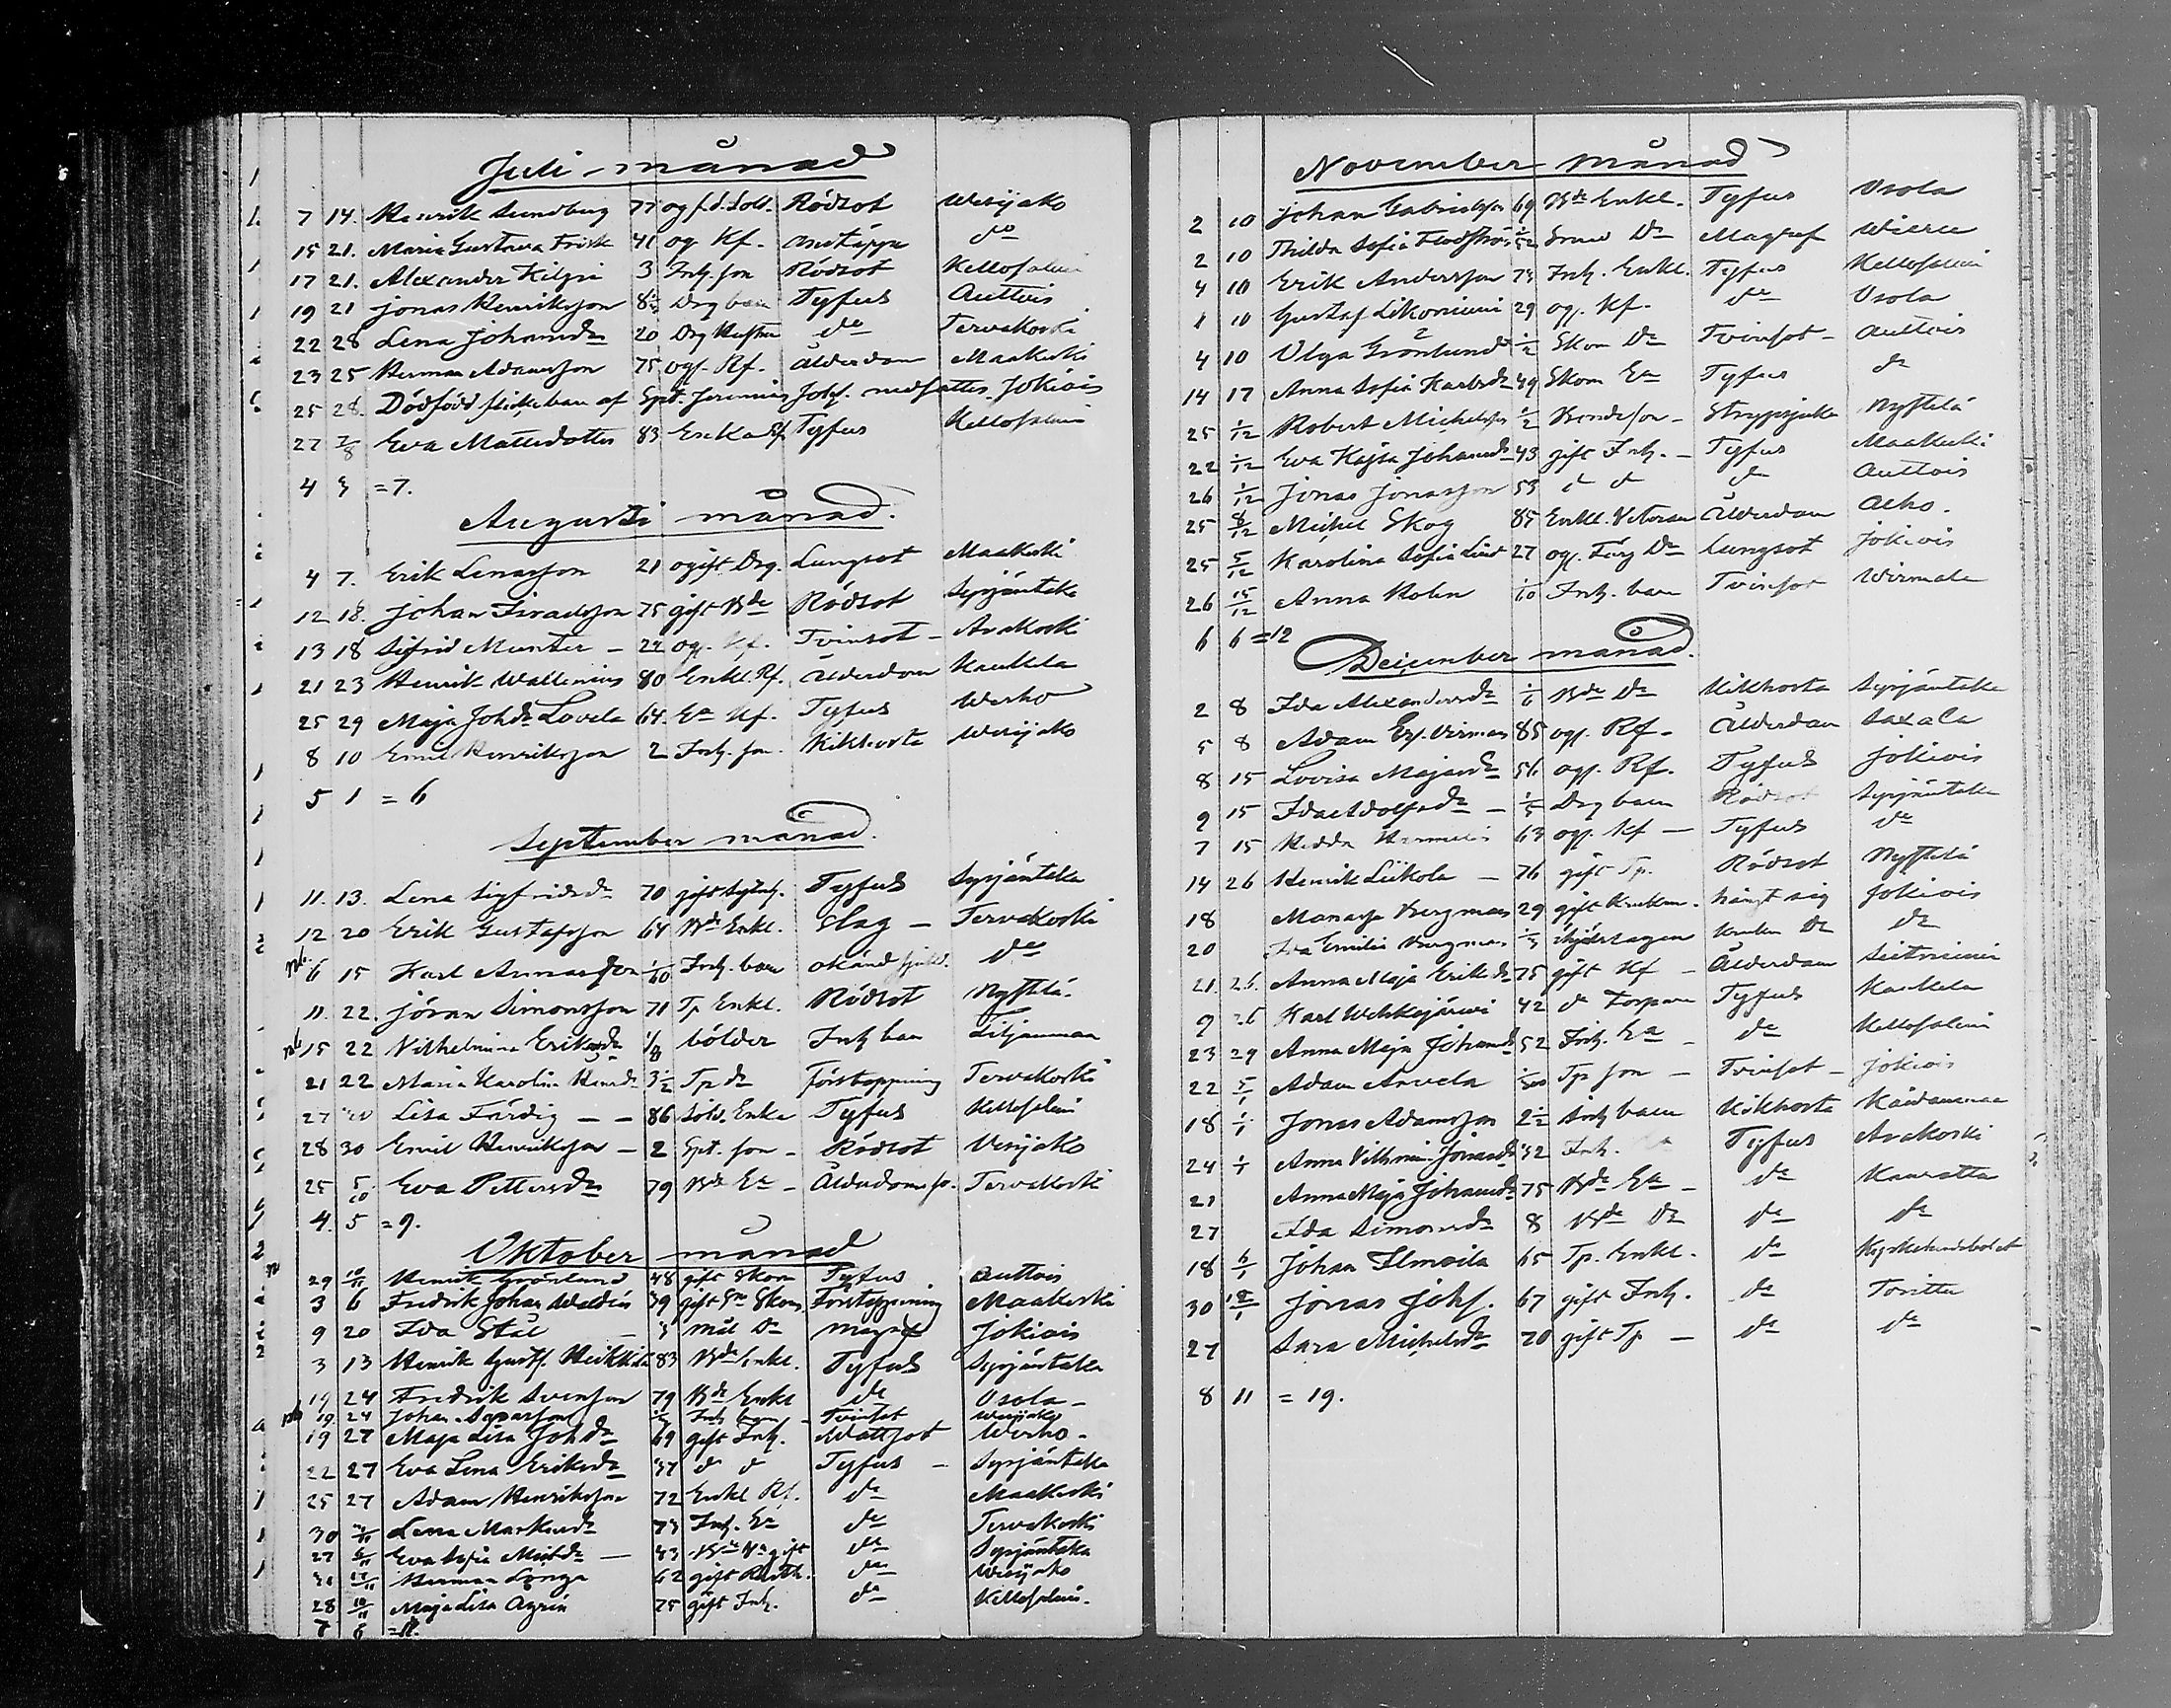 Juli månad
7 14. Henrik Sundberg 77 og f.d. Sold. Rödsot Wesijako
15 21. Maria Gustava Frisk 41 og Kf. do
17 21. Alexander Kilpi 3 Inh. son Rödsot Kellosalmi
19 21 Jonas Henriksson Drg barn Tyfus Auttois
22 28 Lena Johansdr 20 Drg Hustru do Tervakoski
23 25 Herman Adamsson 75 og. Rf. Ålderdom Maakeski
25 28. Dödfödd flickebarn af Spt. Jeremias Johss. Jokiois
27 7/8 Eva Mattsdotter 83 Enka Rf Tyfus Kellosalmi
4 3 = 7.
Augusti månad.
4 7. Erik Lenasson 21 ogift Drg. Lungsot Maakeski
12 18. Johan 75 gift Bde Rödsot Syrjäntaka
13 18 Sigfrid Munter - 22 og. Kf. Tvinsot - Arakoski
21 23 Henrik Wallenius 80 Enkl. Rf. Ålderdom Kaukela
25 29 Maja Johdr Lovela 64. Ea Kf. Tyfus Werho
8 10 Emil Henriksson 2 Inh. son Kikhosta Wesijako
5 1 = 6
September månad.
11. 13. Lena Sigfridsdr 70 gift Tyfus Syrjäntaka
12 20 Erik Gustafsson 64 Bde Enkl. Slag - Tervakoski
6 15 Karl Annasson 1/60 Inh. barn okänd sjukd. do
11. 22. Jöran Simonsson 71 Tp Enkl. Rödsot Nystelä
15 22 Vilhelmina Eriksdr 1/8 bölder Inh barn
21 22 Maria Karolina Henrdr 3 1/2 Tp dr förstoppning Tervakoski
27 Lisa Färdig - - 86 Sold. Enka Tyfus Kellosalmi
28 30 Emil Henriksson - 2 Spt. son - Rödsot Vesijako
25 5/10 Eva Pettersdr 79 Bde Ea - Ålderdoms so. Tervakoski
4. 5 = 9.
Oktober månad
29 10/11 Henrik Grönlund 48 gift Skom Tyfus Auttois
3 6 Fredrik Johan Waldén 39 gift Skom Förstoppning Maakeski
9 20 Ida Stål Mål Dr Magraf Jokiois
3 13 Henrik Gustf. Heikkilä 83 Bde Enkl. Tyfus Syrjäntaka
19 24 Fredrik Svensson 79 Bde Enkl do Vsola -
19. 24 Johan Inh barn - Tvinsot Wesijako
19 27 Maja Lisa Johdr 69 gift Inh. Wattsot Werho -
22 27 Eva Lena Eriksdr 37 d d Tyfus - Syrjäntaka
25 27 Adam Henriksson 72 Enkl Rf. do Maakeski
30 Lena Markusdr 73 Inh. Ea do Tervakoski
27 Eva Sofia Michdr - 43 gift do Syrjäntaka
Herman 62 gift do Wesijako
28 10/11 Maja Lisa Agrén 75 gift Inh. do Kellosalmi.
7 6
November månad
2 10 Johan Gabrielsson 69 Bde Enkl. Tyfus Vsola
2 10 Hilda Sofia Smed Dr Magraf Wieru
4 10 Erik Andersson 73 Inh. Enkl. Tyfus Kellosalmi
1 10 Gustaf 29 og. Kf. do Vsola
4 10 Olga Grönlund 1/2 Skom Dr Tvinsot - Auttois
14 17 Anna Sofia Karlsdr 49 Skom Ea Tyfus do
25 1/12 Robert Michelsson 1/2 Bondeson - Strypsjuka Nystelä
22 1/12 Eva Kajsa Johansdr 43 gift Inh. - Tyfus Maakeski
26 1/12 Jonas Jonasson 53 d d do Auttois
25 8/12 Michel Skog 85 Enkl. Ålderdom Alho.
25 5/12 Karolina Sofia Lind 27 og. Färg Dr lungsot Jokiois
26 15/12 Anna Holm 1/10 Inh. barn Tvinsot Wirmala
6 6 = 12
December månad.
2 8 Ida Alexandersdr 1/6 Bde Dr Kikhosta Syrjäntaka
5 8 Adam 85 og. Rf - Ålderdom Saxala
8 15 Lovisa Majasdr 56 og. Rf. Tyfus Jokiois
9 15 Ida Adolfsdr - 1/5 Drg barn Rödsot Syrjäntaka
7 15 Hedda 63 og. Kf - Tyfus do
14 26 Henrik Liikola - 76 gift Tp. Rödsot Nystelä
18 Manasse Bergman 29 gift hängt sig Jokiois
20 Ida Emilia Bergman ihjälslagen do
21. 26. Anna Maja Eriksdr 75 gift Kf - Ålderdom Seitniemi
9 26 Karl Wehkajärvi 42 d Torpare Tyfus Kaukela
23 29 Anna Maja Johansdr 52 Inh. Ea - do Kellosalmi
22 5/1 Adam Arvela Tp son - Tvinsot - Jokiois
18 1/1 Jonas Adamsson 2 1/2 Inh barn Kikhosta
24 1/1 Anna Vilhelmina Jonasdr 32 Inh. Tyfus Arakoski
21 Anna Maja Johansdr 75 Bde Ea - do Kauratta
27 Ida Simonsdr 8 Bde Dr do do
18 6/1 Johan Ilmoila 65 Tp. Enkl. do
30 Jonas Johs. 67 gift Inh. do Torittu
27 Sara Michelsdr 70 gift Tp - do do
8 11 = 19.